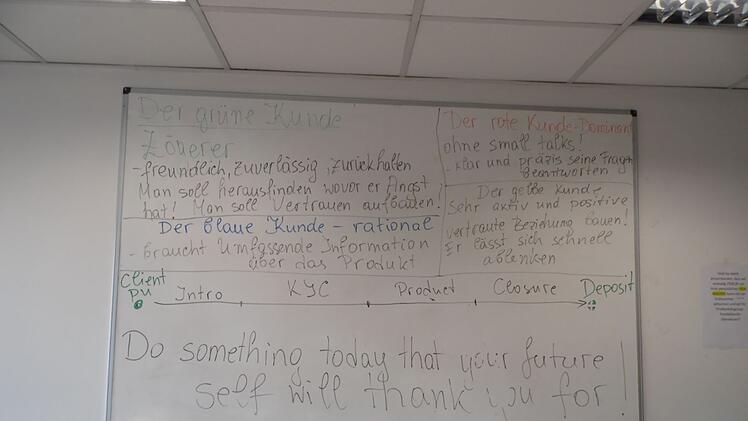 Der grüne Kunde
Zöuerer
- freundlich, zuverlässig, zurückhalten
Man soll herausfinden wovor er Angst
hat! Man soll Vertrauen aufbauen!
Der blaue Kunde - rational
- braucht Umfassende Information
über das Produkt
Der rote Kunde-Dominant
ohne small talks!
- klar und präzis seine Fragen
Beantworten
Der gelbe Kunde
Sehr aktiv und positive
vertraute Beziehung bauen!
Er lässt sich schnell
ablenken
Client
pu Intro KYC Product Closure Deposit
Do something today that your future
self will thank you for!